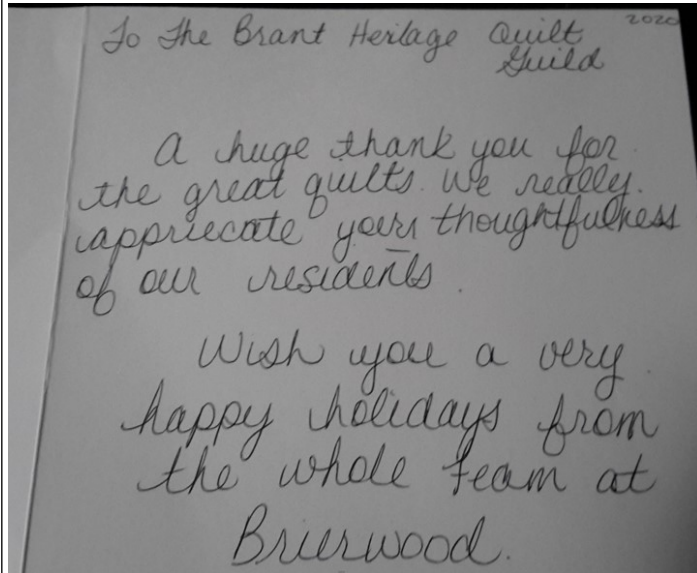 2020
To The Brant Heritage Quilt
Guild
A huge thank you for
the great quilts. We really
appriecate your thoughtfulness
of our residents.
Wish you a very
happy holidays from
the whole team at
Brierwood.